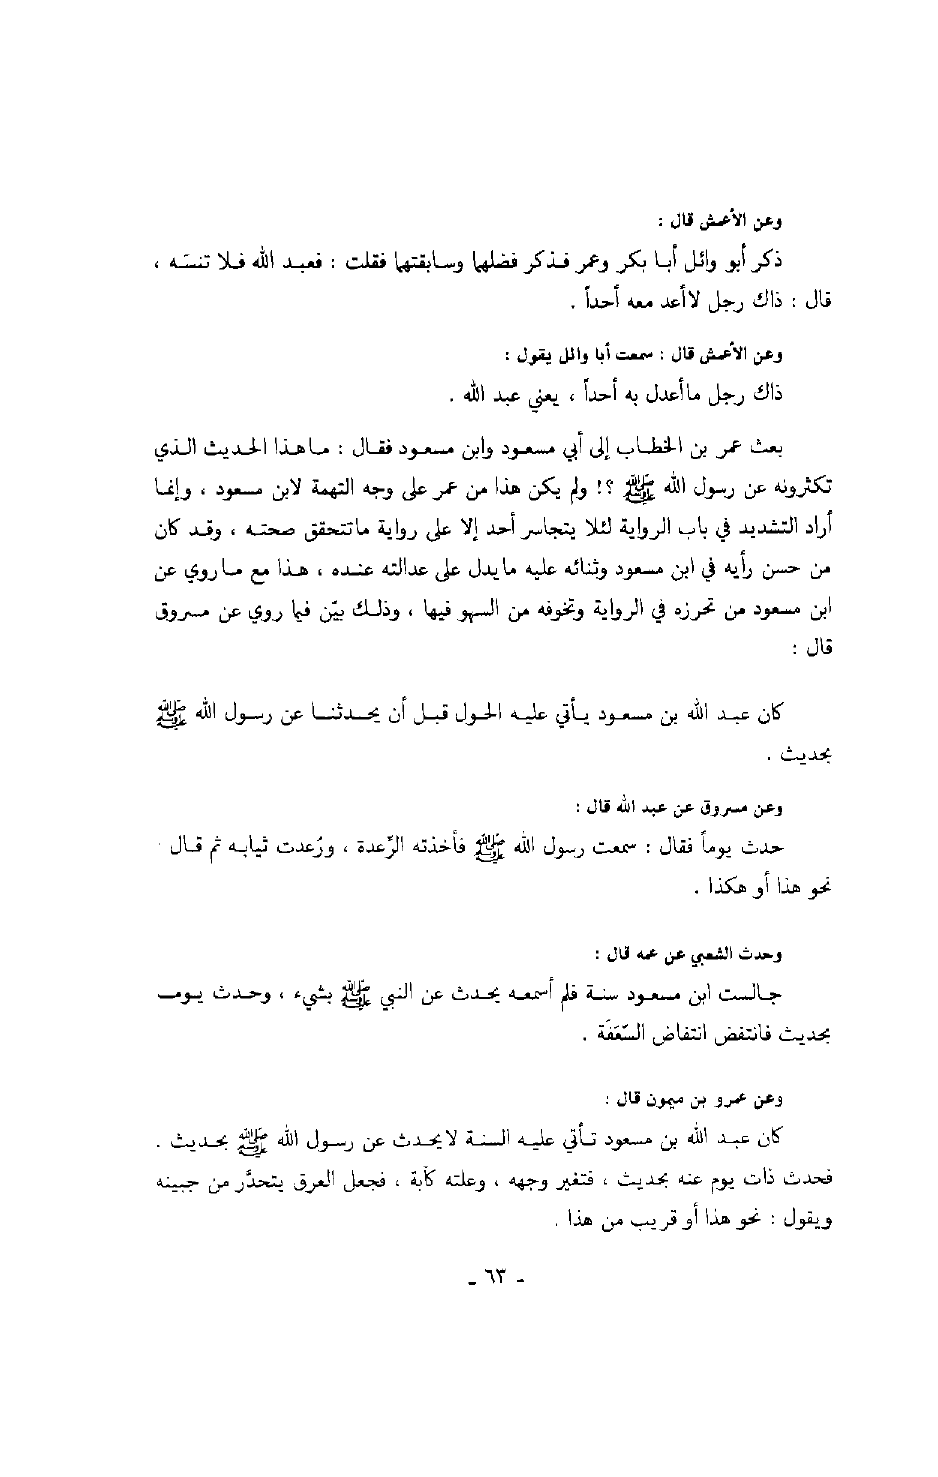 وعن الأعمش قال :
ذكر أبو وائل أبا بكر وعمر فذكر فضلهما وسابقتهما فقلت : فعبد الله فلا تنسَه ،
قال : ذاك رجل لاأعد معه أحداً .
وعن الأعمش قال : سمعت أبا وائل يقول :
ذاك رجل ماأعدل به أحداً ، يعني عبد الله .
بعث عمر بن الخطاب إلى أبي مسعود وابن مسعود فقال : ماهذا الحديث الذي
تكثرونه عن رسول الله ﷺ ؟! ولم يكن هذا من عمر على وجه التهمة لابن مسعود ، وإنما
أراد التشديد في باب الرواية لئلا يتجاسر أحد إلا على رواية ماتتحقق صحته ، وقد كان
من حسن رأيه في ابن مسعود وثنائه عليه مايدل على عدالته عنده ، هذا مع ماروي عن
ابن مسعود من تحرزه في الرواية وتخوفه من السهو فيها ، وذلك بيّن فيما روي عن مسروق
قال :
كان عبد الله بن مسعود يأتي عليه الحول قبل أن يحدثنا عن رسول الله ﷺ
بحديث .
وعن مسروق عن عبد الله قال :
حدث يوماً فقال : سمعت رسول الله ﷺ فأخذته الرِّعدة ، ورُعدت ثيابه ثم قال
نحو هذا أو هكذا .
وحدث الشعبي عن عمه قال :
جالست ابن مسعود سنة فلم أسمعه يحدث عن النبي ﷺ بشيء ، وحدث يوماً
بحديث فانتفض انتفاض السَّعَفَة .
وعن عمرو بن ميمون قال :
كان عبد الله بن مسعود تأتي عليه السنة لايحدث عن رسول الله ﷺ بحديث .
فحدث ذات يوم عنه بحديث ، فتغير وجهه ، وعلته كآبة ، فجعل العرق يتحدَّر من جبينه
ويقول : نحو هذا أو قريب من هذا .
- ٦٣ -